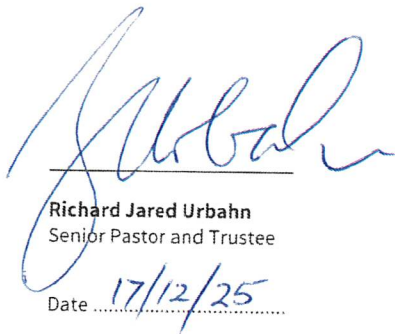 Urbahn
Richard Jared Urbahn
Senior Pastor and Trustee
Date 17/12/25